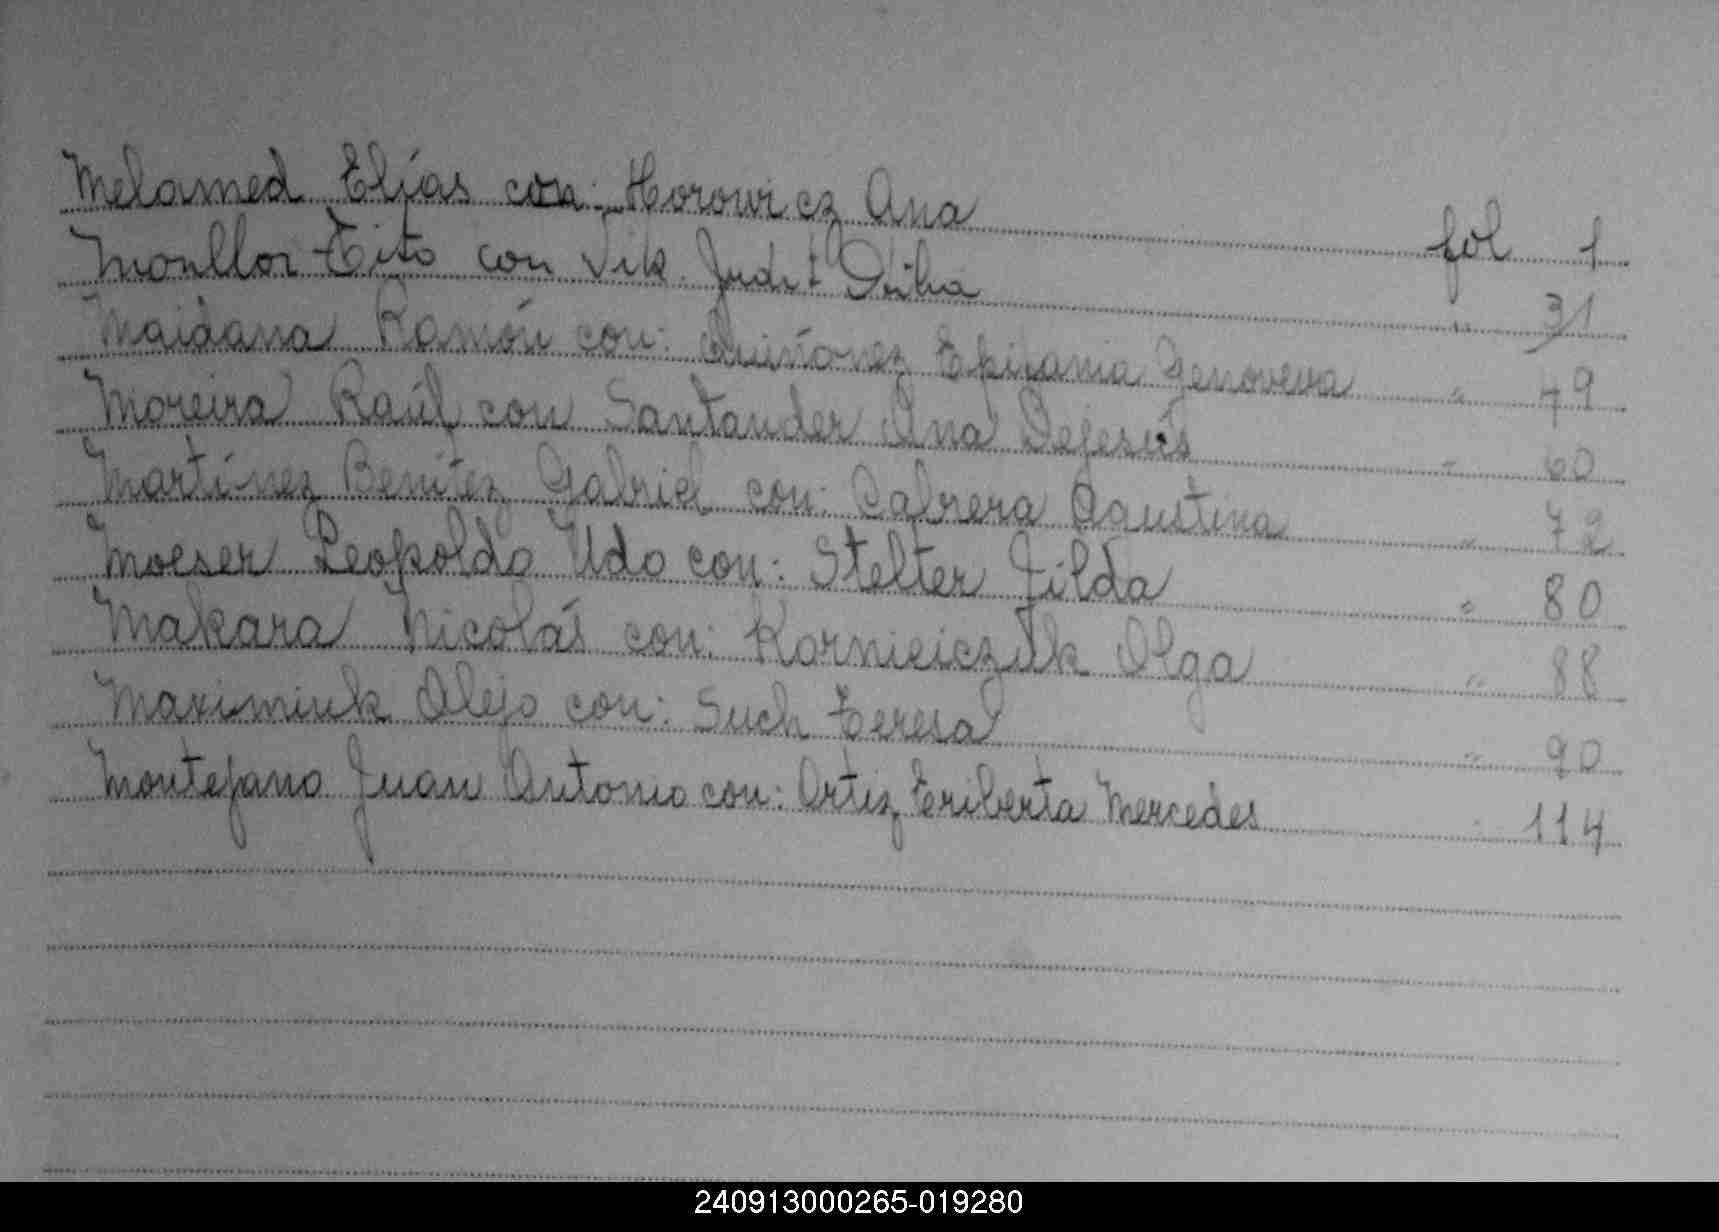 Melamed Elías con: Horowicz Ana fol 1
Monllor Tito con Vik Judit " 31
Maidana Ramón con: Quiñónez Epifania Genoveva " 49
Moreira Raúl con Santander Ana Dejesús " 60
Martínez Benítez Gabriel con: Cabrera Agustina " 72
Moeser Leopoldo Udo con: Stelter Jilda " 80
Makara Nicolás con: Kornieiczuk Olga " 88
Maximiuk Alejo con: Such Teresa " 90
Montejano Juan Antonio con: Ortiz Eriberta Mercedes " 114
240913000265-019280